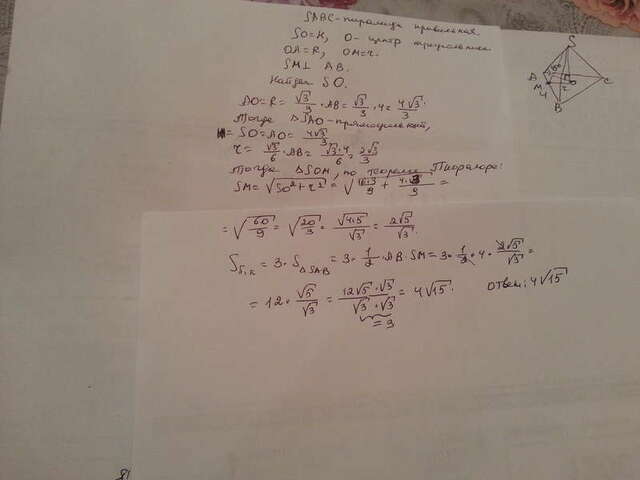 SABC - пирамида правильная
SO=H, O - центр треугольника
OA=R, OM=r.
SM⊥AB.
Найдем SO.
AO=R=√3/3·AB=√3/3·4=4√3/3.
Тогда ΔSAO - прямоугольный,
H=SO=AO=4√3/3
r=√3/6·AB=√3·4/6=2√3/3
Тогда ΔSOM, по теореме Пифагора:
SM=√(SO²+r²)=√(16·3/9+4·3/9)=
=√(60/9)=√(20/3)=√(4·5)/√3=2√5/√3.
Sб.п.=3·SΔSAB=3·1/2·AB·SM=3·1/2·4·2√5/√3=
=12·√5/√3=12√5·√3/√3·√3=4√15.
=3
Ответ: 4√15
S
A
45°
O
M
r
C
4
B